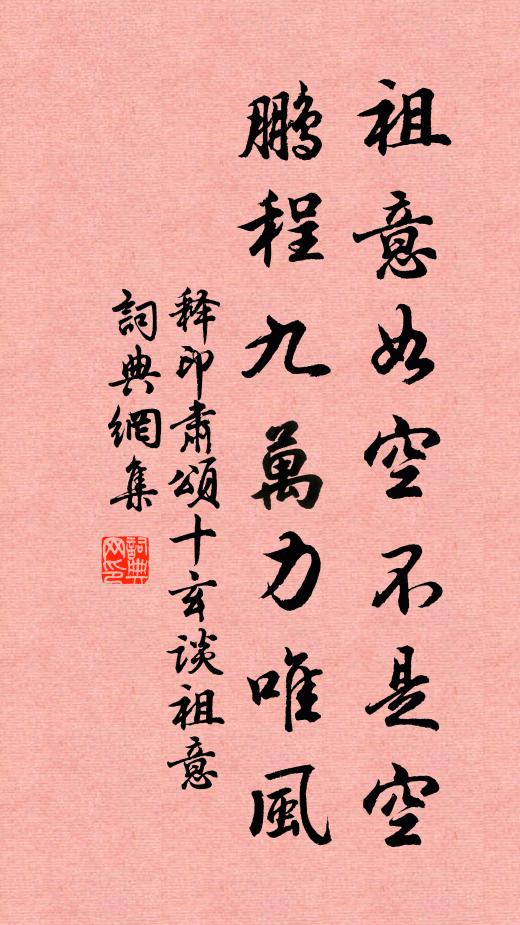 祖意如空不是空
鹏程九萬力唯風
释印肃頌十玄谈祖意
詞典網集
詞典网印